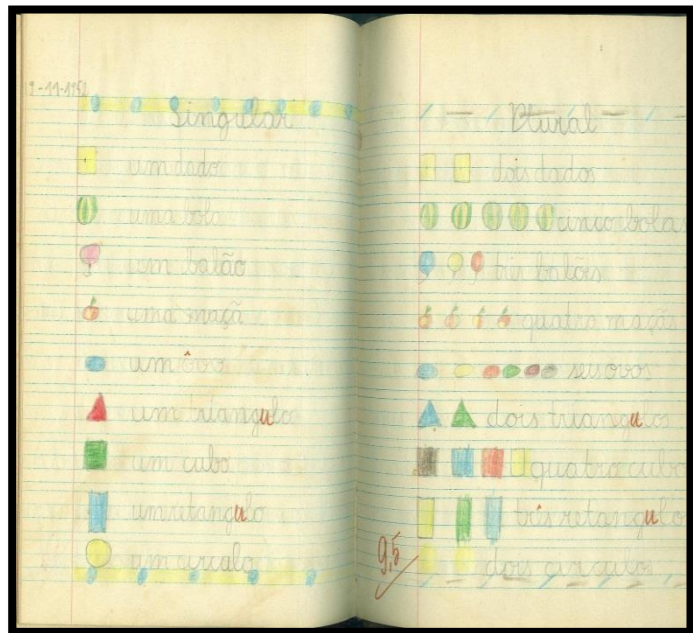 9-11-195
Singular
um dado
uma bola
um balão
uma maçã
um ôvo
um triangulo
um cubo
um retangulo
um circulo
Plural
dois dados
cinco bolas
três balões
quatro maçãs
seis ovos
dois triangulos
quatro cubo
três retangulo
dois circulos
9,5